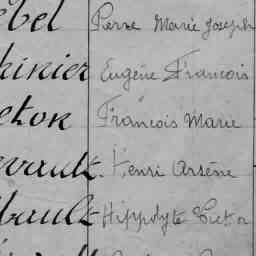 ebel Pierre Marie Joseph
hinier Eugène François
eton François Marie
evault Henri Arsène
bault Hippolyte Victor